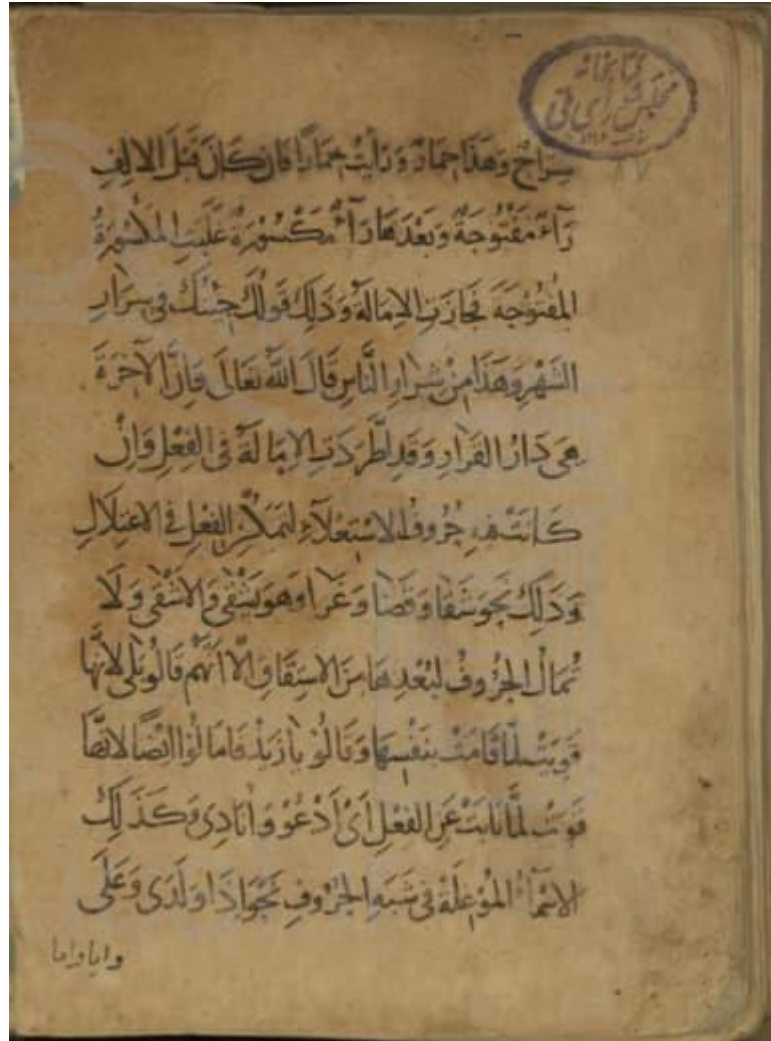 كتابخانه
مجلس شورای ملی
سراج وهذا حمار ورأيت حمارا فان كان قبل الالف
رآء مفتوحة وبعدها رآء مكسورة غلبت المكسورة
المفتوحة فجازت الامالة وذلك قولك جئتك في سرار
الشهر وهذا من شرار الناس قال الله تعالى وان الآخرة
هي دار القرار وقد اطردت الامالة في الفعل وان
كانت فيه حروف الاستعلآء لتمكن الفعل في الاعتلال
وذلك نحو سقا وقضا وغزا وهو يشقى والاشقى ولا
تمال الحروف لبعدها من الاشتقاق الا انهم قالوا بلى لانها
قويت لما قامت بنفسها وقالوا يا زيد فامالوا ايضا لانها
قويت لما نابت عن الفعل أي أدعو وأنادي وكذلك
الاسمآء الموغلة في شبه الحروف نحو اذا ولدى وعلى
واما واما